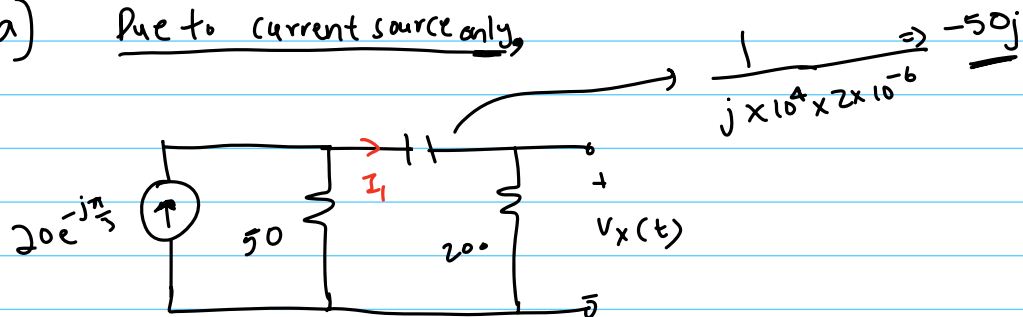 a) Due to current source only,
1 / j × 10⁴ × 2 × 10⁻⁶ ⇒ -50j
I₁
+
20e^(-jπ/3) 50 200 Vx(t)
-